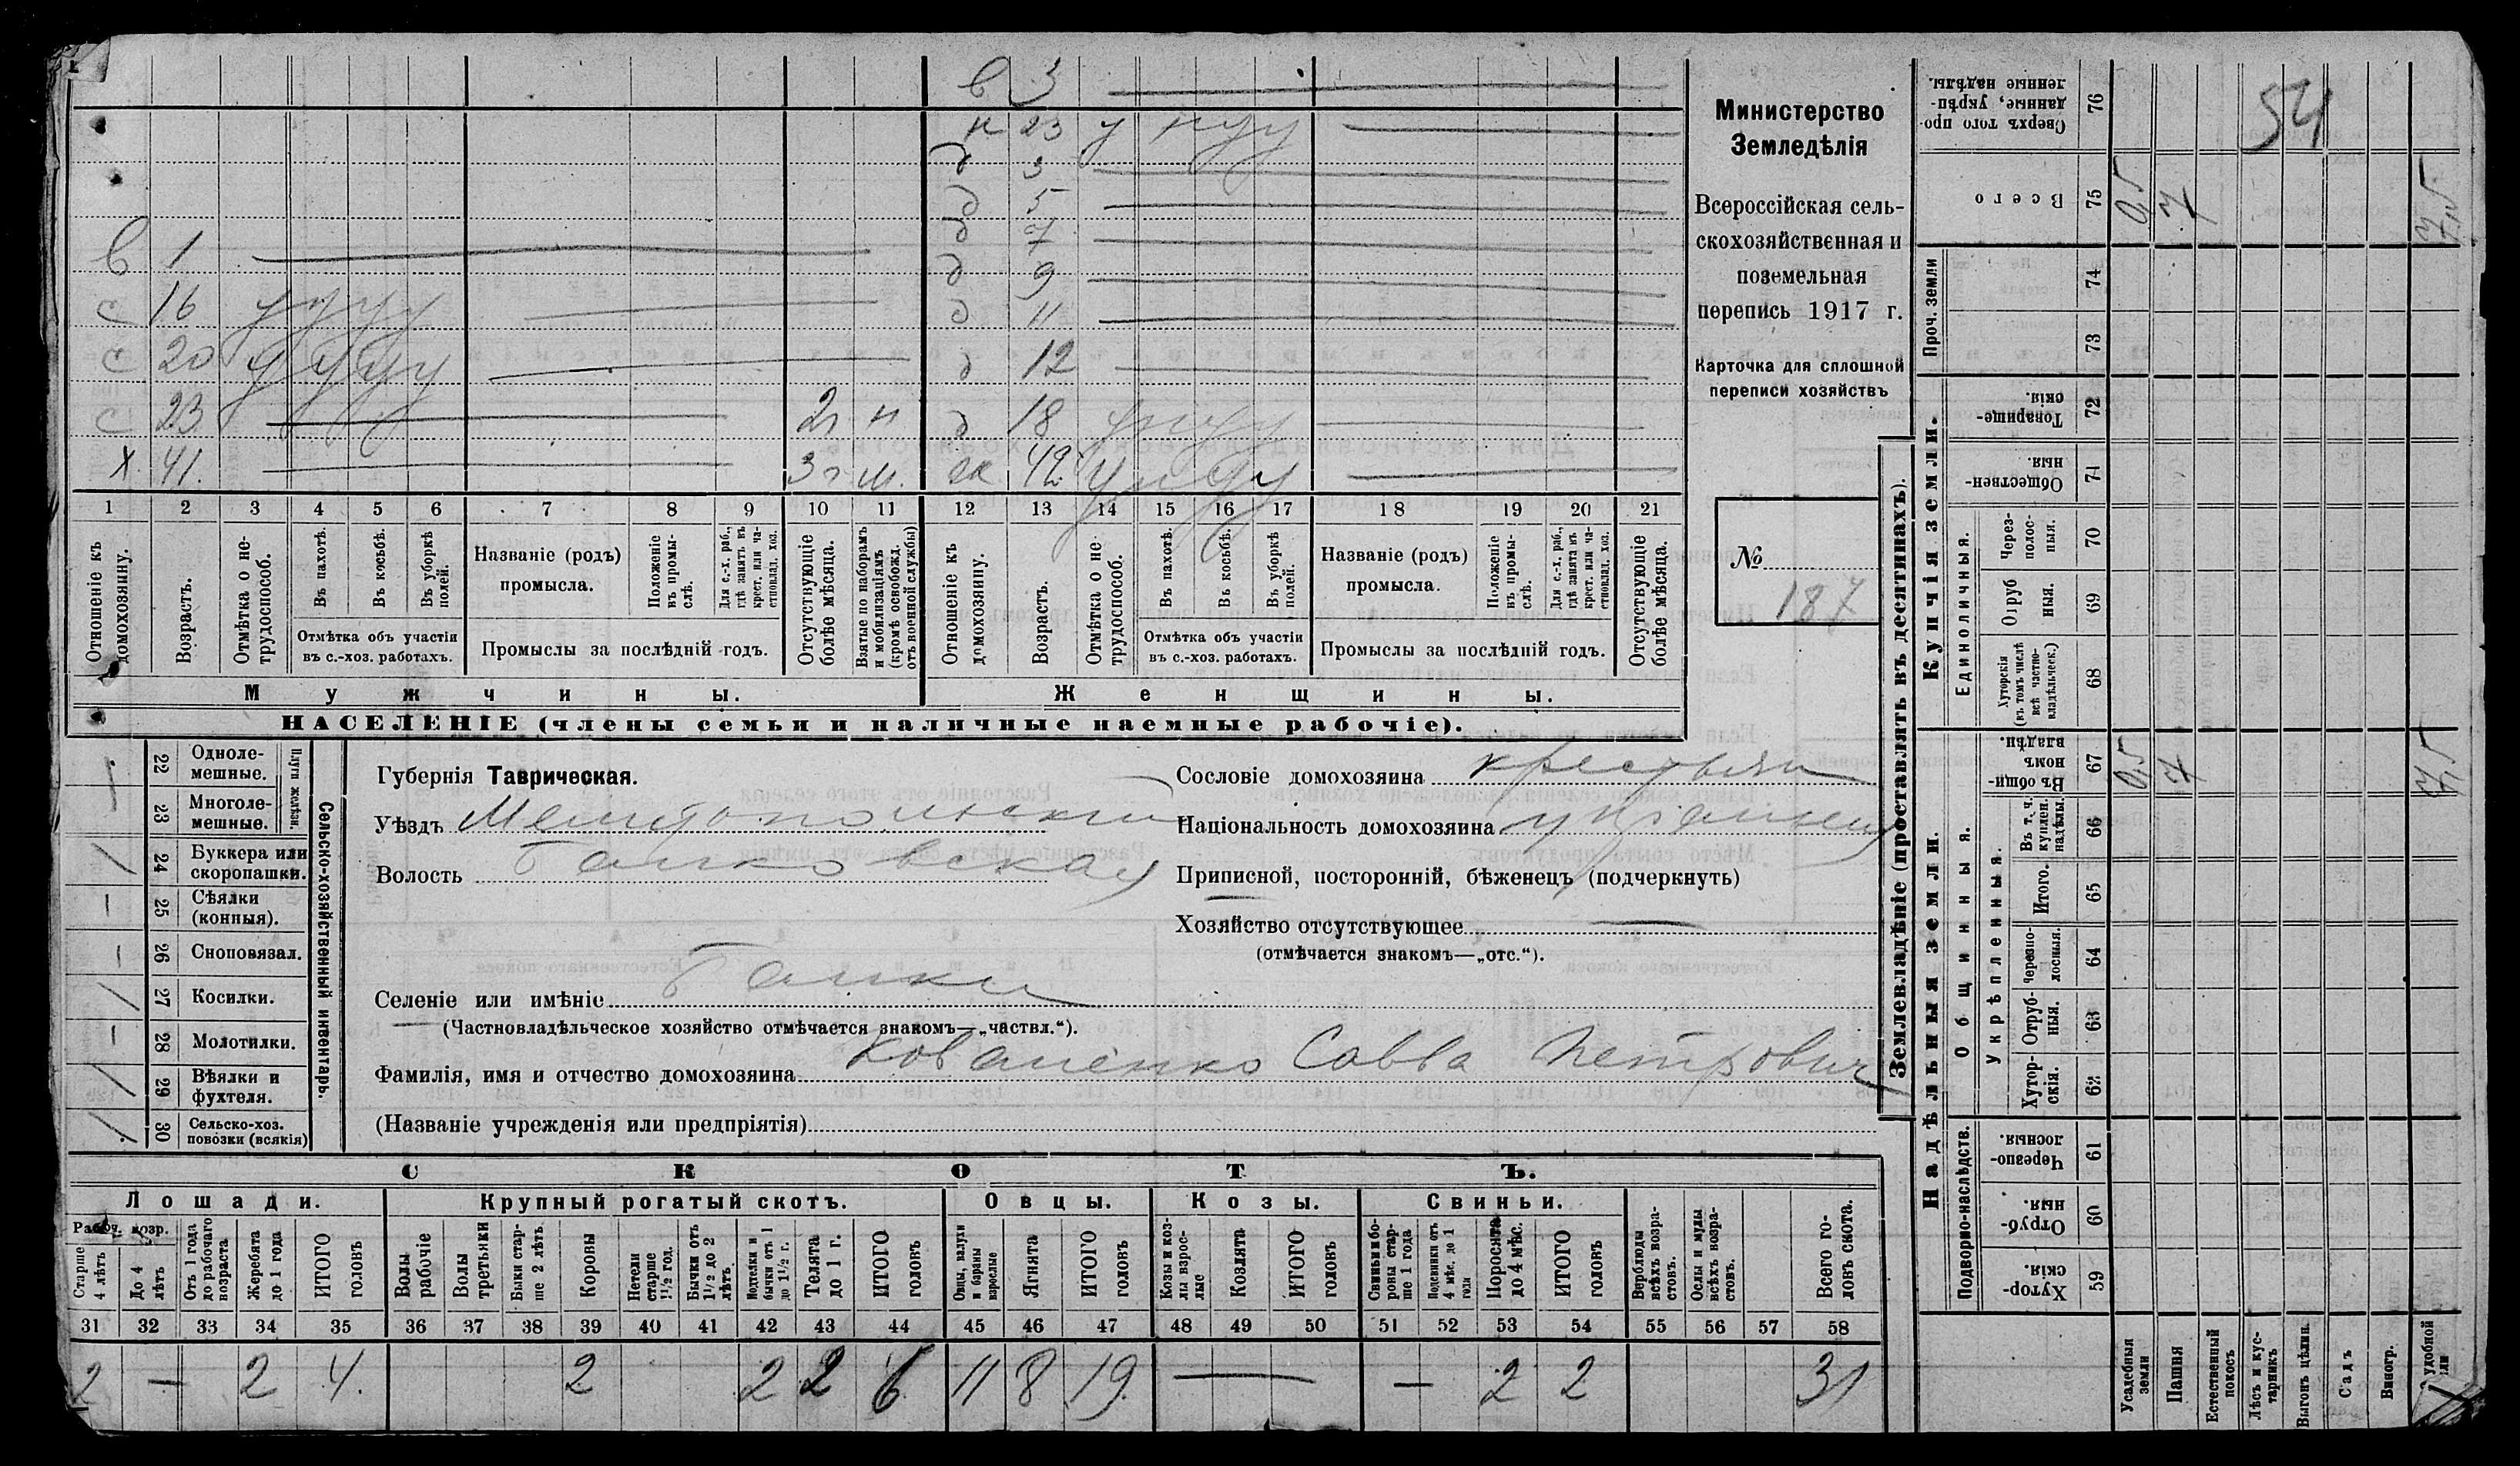 в 3
н 23 у нуу
д 3
д 5
д 7
в 1
д 9
с 16 уууу
д 11
с 20 уууу
д 12
с 23 2г н
д 18 унуу
х 41. 3г м.
ж 42 унуу
1 2 3 4 5 6 7 8 9 10 11 12 13 14 15 16 17 18 19 20 21
Отношеніе къ домохозяину.
Возрастъ.
Отмѣтка о не-трудоспособ.
Въ пахотѣ.
Въ косьбѣ.
Въ уборкѣ полей.
Отмѣтка объ участіи въ с.-хоз. работахъ.
Названіе (родъ) промысла.
Положеніе въ промы-слѣ.
Для с.-х. раб., гдѣ занятъ въ крест. или ча-стновлад. хоз.
Промыслы за послѣдній годъ.
Отсутствующіе болѣе мѣсяца.
Взятые по наборамъ и мобилизаціямъ (кромѣ освобожд. отъ военной службы)
Отношеніе къ домохозяину.
Возрастъ.
Отмѣтка о не трудоспособ.
Въ пахотѣ.
Въ косьбѣ.
Въ уборкѣ полей.
Отмѣтка объ участіи въ с.-хоз. работахъ.
Названіе (родъ) промысла.
Положеніе въ промы-слѣ.
Для с.-х. раб., гдѣ занята въ крест. или ча-стновлад. хоз.
Промыслы за послѣдній годъ.
Отсутствующіе болѣе мѣсяца.
Мужчины.
Женщины.
НАСЕЛЕНІЕ (члены семьи и наличные наемные рабочіе).
Министерство
Земледѣлія
Всероссійская сель-
скохозяйственная и
поземельная
перепись 1917 г.
Карточка для сплошной
переписи хозяйствъ
№
187
Сельско-хозяйственный инвентарь.
Плуги желѣзн.
22 Одноле-мешные.
23 Многоле-мешные.
24 Буккера или скоропашки.
25 Сѣялки (конныя).
26 Сноповязал.
27 Косилки.
28 Молотилки.
29 Вѣялки и фухтеля.
30 Сельско-хоз. повозки (всякія)
Губернія Таврическая.
Уѣздъ Мелитопольскій
Волость Балковская
Сословіе домохозяина крестьян
Національность домохозяина украинец
Приписной, посторонній, бѣженецъ (подчеркнуть)
Хозяйство отсутствующее
(отмѣчается знакомъ—„отс.“).
Селеніе или имѣніе Балки
(Частновладѣльческое хозяйство отмѣчается знакомъ—„частвл.“).
Фамилія, имя и отчество домохозяина Коваленко Савва Петрович
(Названіе учрежденія или предпріятія)
СКОТЪ.
Лошади. Крупный рогатый скотъ. Овцы. Козы. Свиньи.
Рабоч. возр.
Старше 4 лѣтъ
До 4 лѣтъ
Отъ 1 года до рабочаго возраста
Жеребята до 1 года
ИТОГО головъ
Волы рабочіе
Волы третьяки
Быки стар-ше 2 лѣтъ
Коровы
Нетели старше 1½ год.
Бычки отъ 1½ до 2 лѣтъ
Подтелки и бычки отъ 1 до 1½ г.
Телята до 1 г.
ИТОГО головъ
Овцы, валухи и бараны взрослые
Ягнята
ИТОГО головъ
Козы и коз-лы взрос-лые
Козлята
ИТОГО головъ
Свиньи и бо-ровы стар-ше 1 года
Подсвинки отъ 4 мѣс. до 1 года
Поросята до 4 мѣс.
ИТОГО головъ
Верблюды всѣхъ возра-стовъ.
Ослы и мулы всѣхъ возра-стовъ.
Всего го-ловъ скота.
31 32 33 34 35 36 37 38 39 40 41 42 43 44 45 46 47 48 49 50 51 52 53 54 55 56 57 58
2 — 2 4. 2 2 2 6 11 8 19. — — 2 2 31
Землевладѣніе (проставлять въ десятинахъ).
54
Сверхъ того про-данные, укрѣп-ленные надѣлы. 76
Всего 75 0,5 7 7,5
Проч. земли 74 73
Купчія земли.
Товарище-скія. 72
Обществен-ныя. 71
Единоличныя.
Через-полос-ныя. 70
Отруб ныя. 69
Хуторскія (въ томъ числѣ всѣ частно-владѣльческ.) 68
Надѣльныя земли.
Общинныя.
Въ общи-номъ владѣн. 67 0,5 7 7,5
Укрѣпленныя.
Въ т. ч. куплен. надѣлы. 66
Итого. 65
Черезпо-лосныя. 64
Отруб-ныя. 63
Хутор-скія. 62
Подворно-наслѣдств.
Черезпо-лосныя. 61
Отруб-ныя. 60
Хутор-скія. 59
Усадебныя земли
Пашня
Естественный покосъ
Лѣсъ и кус-тарникъ
Выгонъ цѣлин.
Садъ
Виногр.
удобной